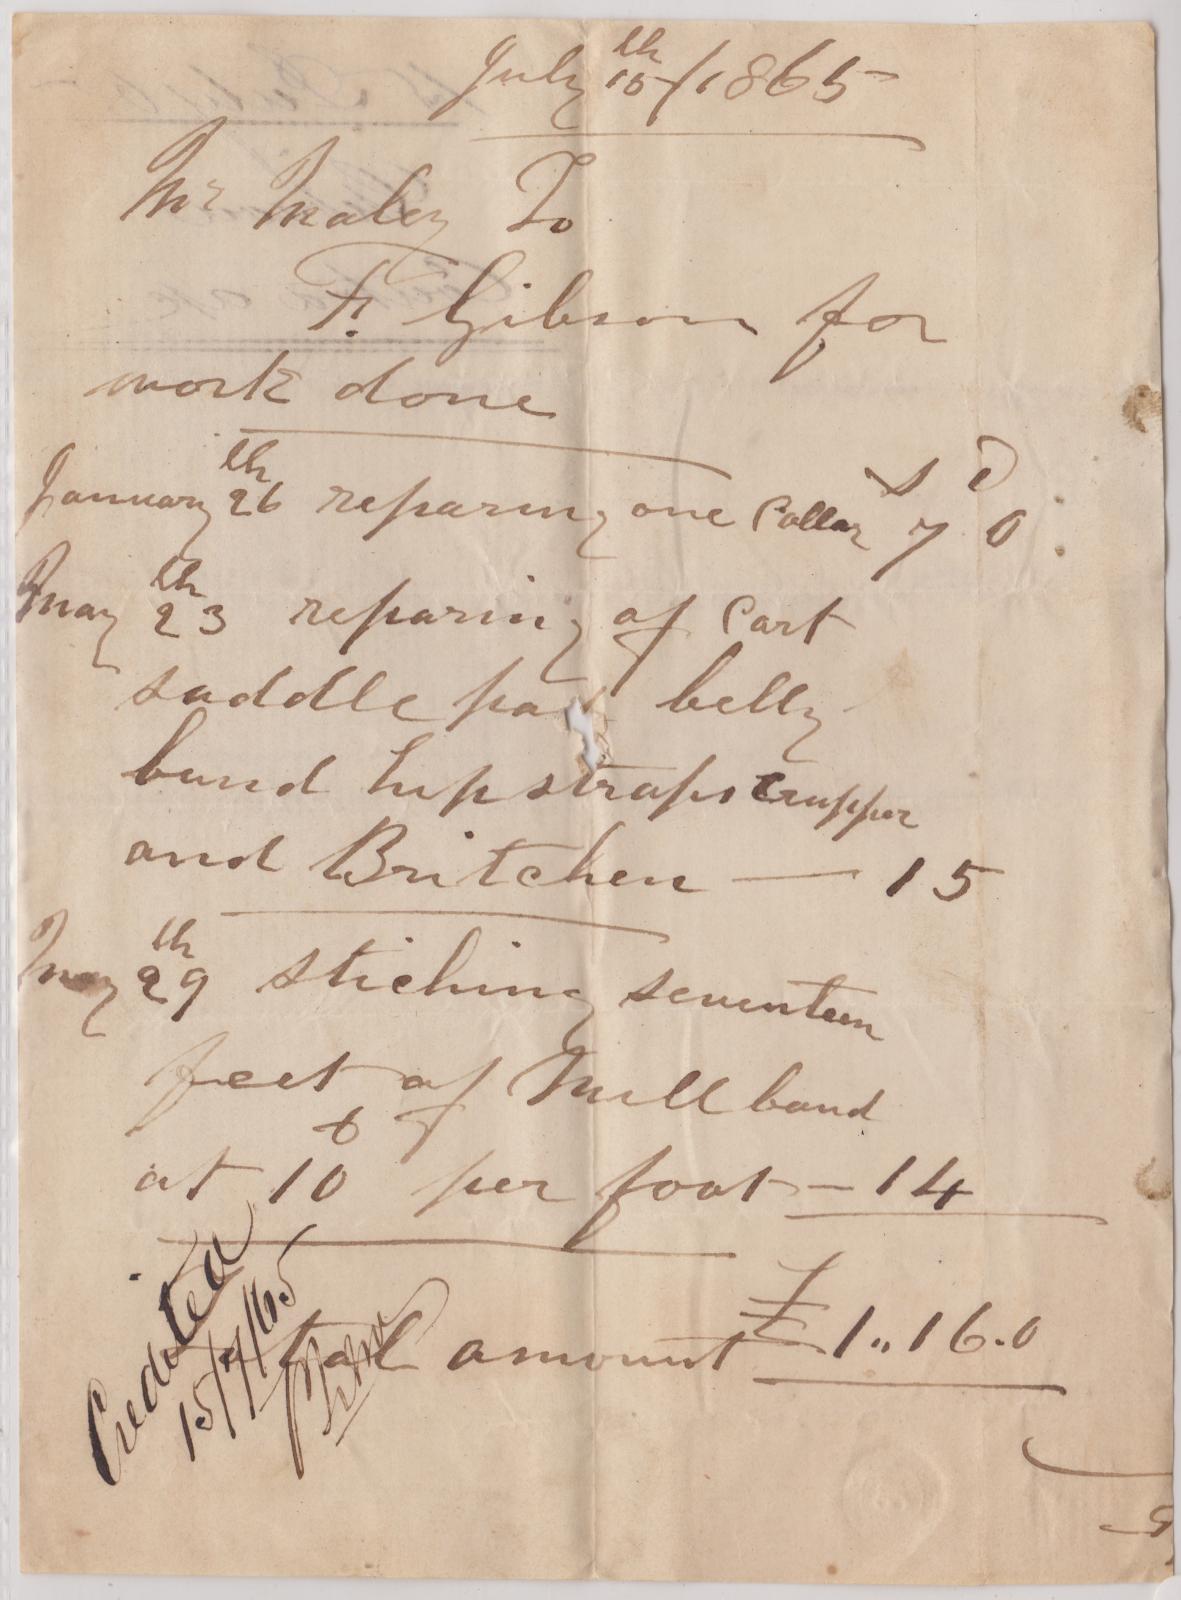 July 15th/1865
Mr Maley To
F. Gibson for
work done
S D
January 26th reparing one Collar 7 0
May 23th reparing of Cart
saddle pad belly
band hip straps Crupper
and Britchen — 15
May 29th stiching seventeen
feet of Mill band
at 10d per foot — 14
total amount £1..16.0
Credited
15/7/65